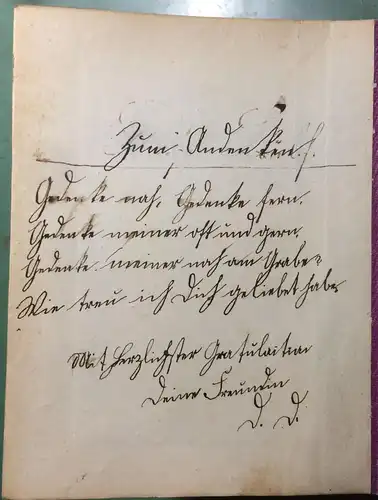 Zum Andenken!
Gedenke nah, Gedenke fern.
Gedenke meiner oft und gern.
Gedenke meiner noch am Grabe
Wie treu ich Dich geliebet habe
Mit herzlichster Gratulaition
Deine Freundin
D. D.